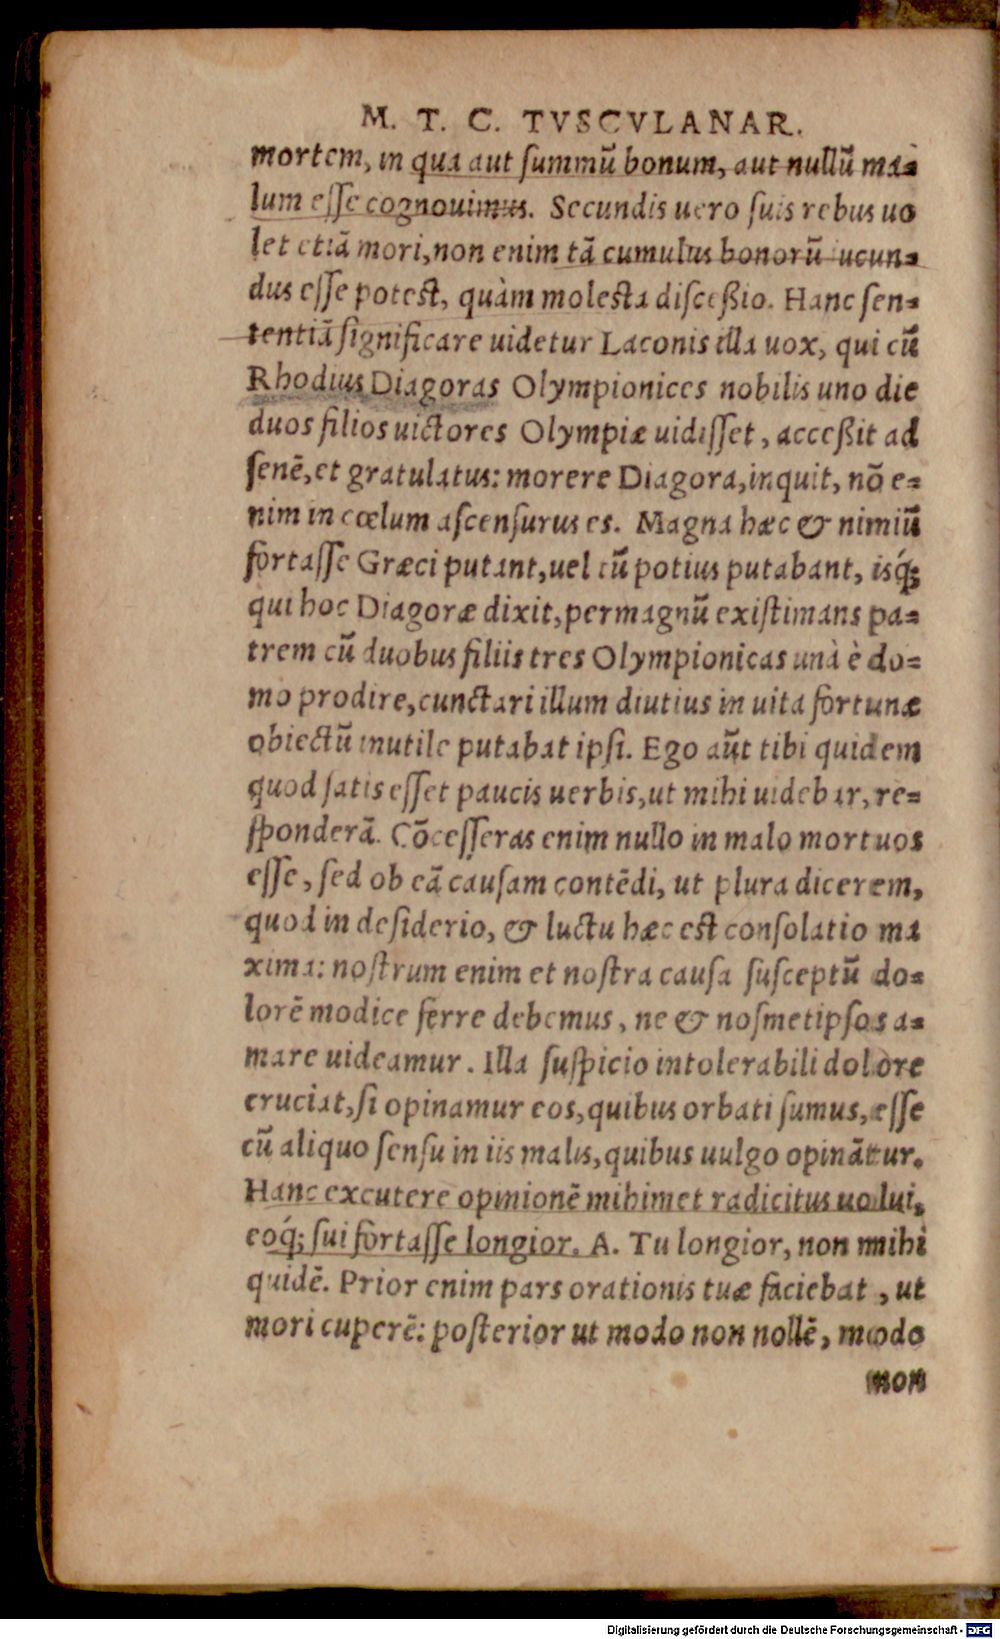 M. T. C. TVSCVLANAR.
mortem, in qua aut ſummū bonum, aut nullū ma=
lum eſſe cognouimus. Secundis uero ſuis rebus uo
let etiā mori, non enim tā cumulus bonorū iucun=
dus eſſe poteſt, quàm moleſta diſceßio. Hanc ſen=
tentiā ſignificare uidetur Laconis illa uox, qui cū
Rhodius Diagoras Olympionices nobilis uno die
duos filios uictores Olympiæ uidiſſet, acceßit ad
ſenē, et gratulatus: morere Diagora, inquit, nō e=
nim in cœlum aſcenſurus es. Magna hæc & nimiū
fortaſſe Græci putant, uel tū potius putabant, isq́;
qui hoc Diagoræ dixit, permagnū exiſtimans pa=
trem cū duobus filiis tres Olympionicas unà è do=
mo prodire, cunctari illum diutius in uita fortunæ
obiectū inutile putabat ipſi. Ego aūt tibi quidem
quod ſatis eſſet paucis uerbis, ut mihi uidebar, re=
ſponderā. Cōceſſeras enim nullo in malo mortuos
eſſe, ſed ob eā cauſam contēdi, ut plura dicerem,
quod in deſiderio, & luctu hæc eſt conſolatio ma
xima: noſtrum enim et noſtra cauſa ſuſceptū do=
lorē modice ferre debemus, ne & noſmetipſos a=
mare uideamur. Illa ſuſpicio intolerabili dolore
cruciat, ſi opinamur eos, quibus orbati ſumus, eſſe
cū aliquo ſenſu in iis malis, quibus uulgo opināt̄ur.
Hanc excutere opinionē mihimet radicitus uolui,
eoq́; fui fortaſſe longior. A. Tu longior, non mihi
quidē. Prior enim pars orationis tuæ faciebat, ut
mori cuperē: poſterior ut modo non nollē, modo
non
Digitalisierung gefördert durch die Deutsche Forschungsgemeinschaft - DFG